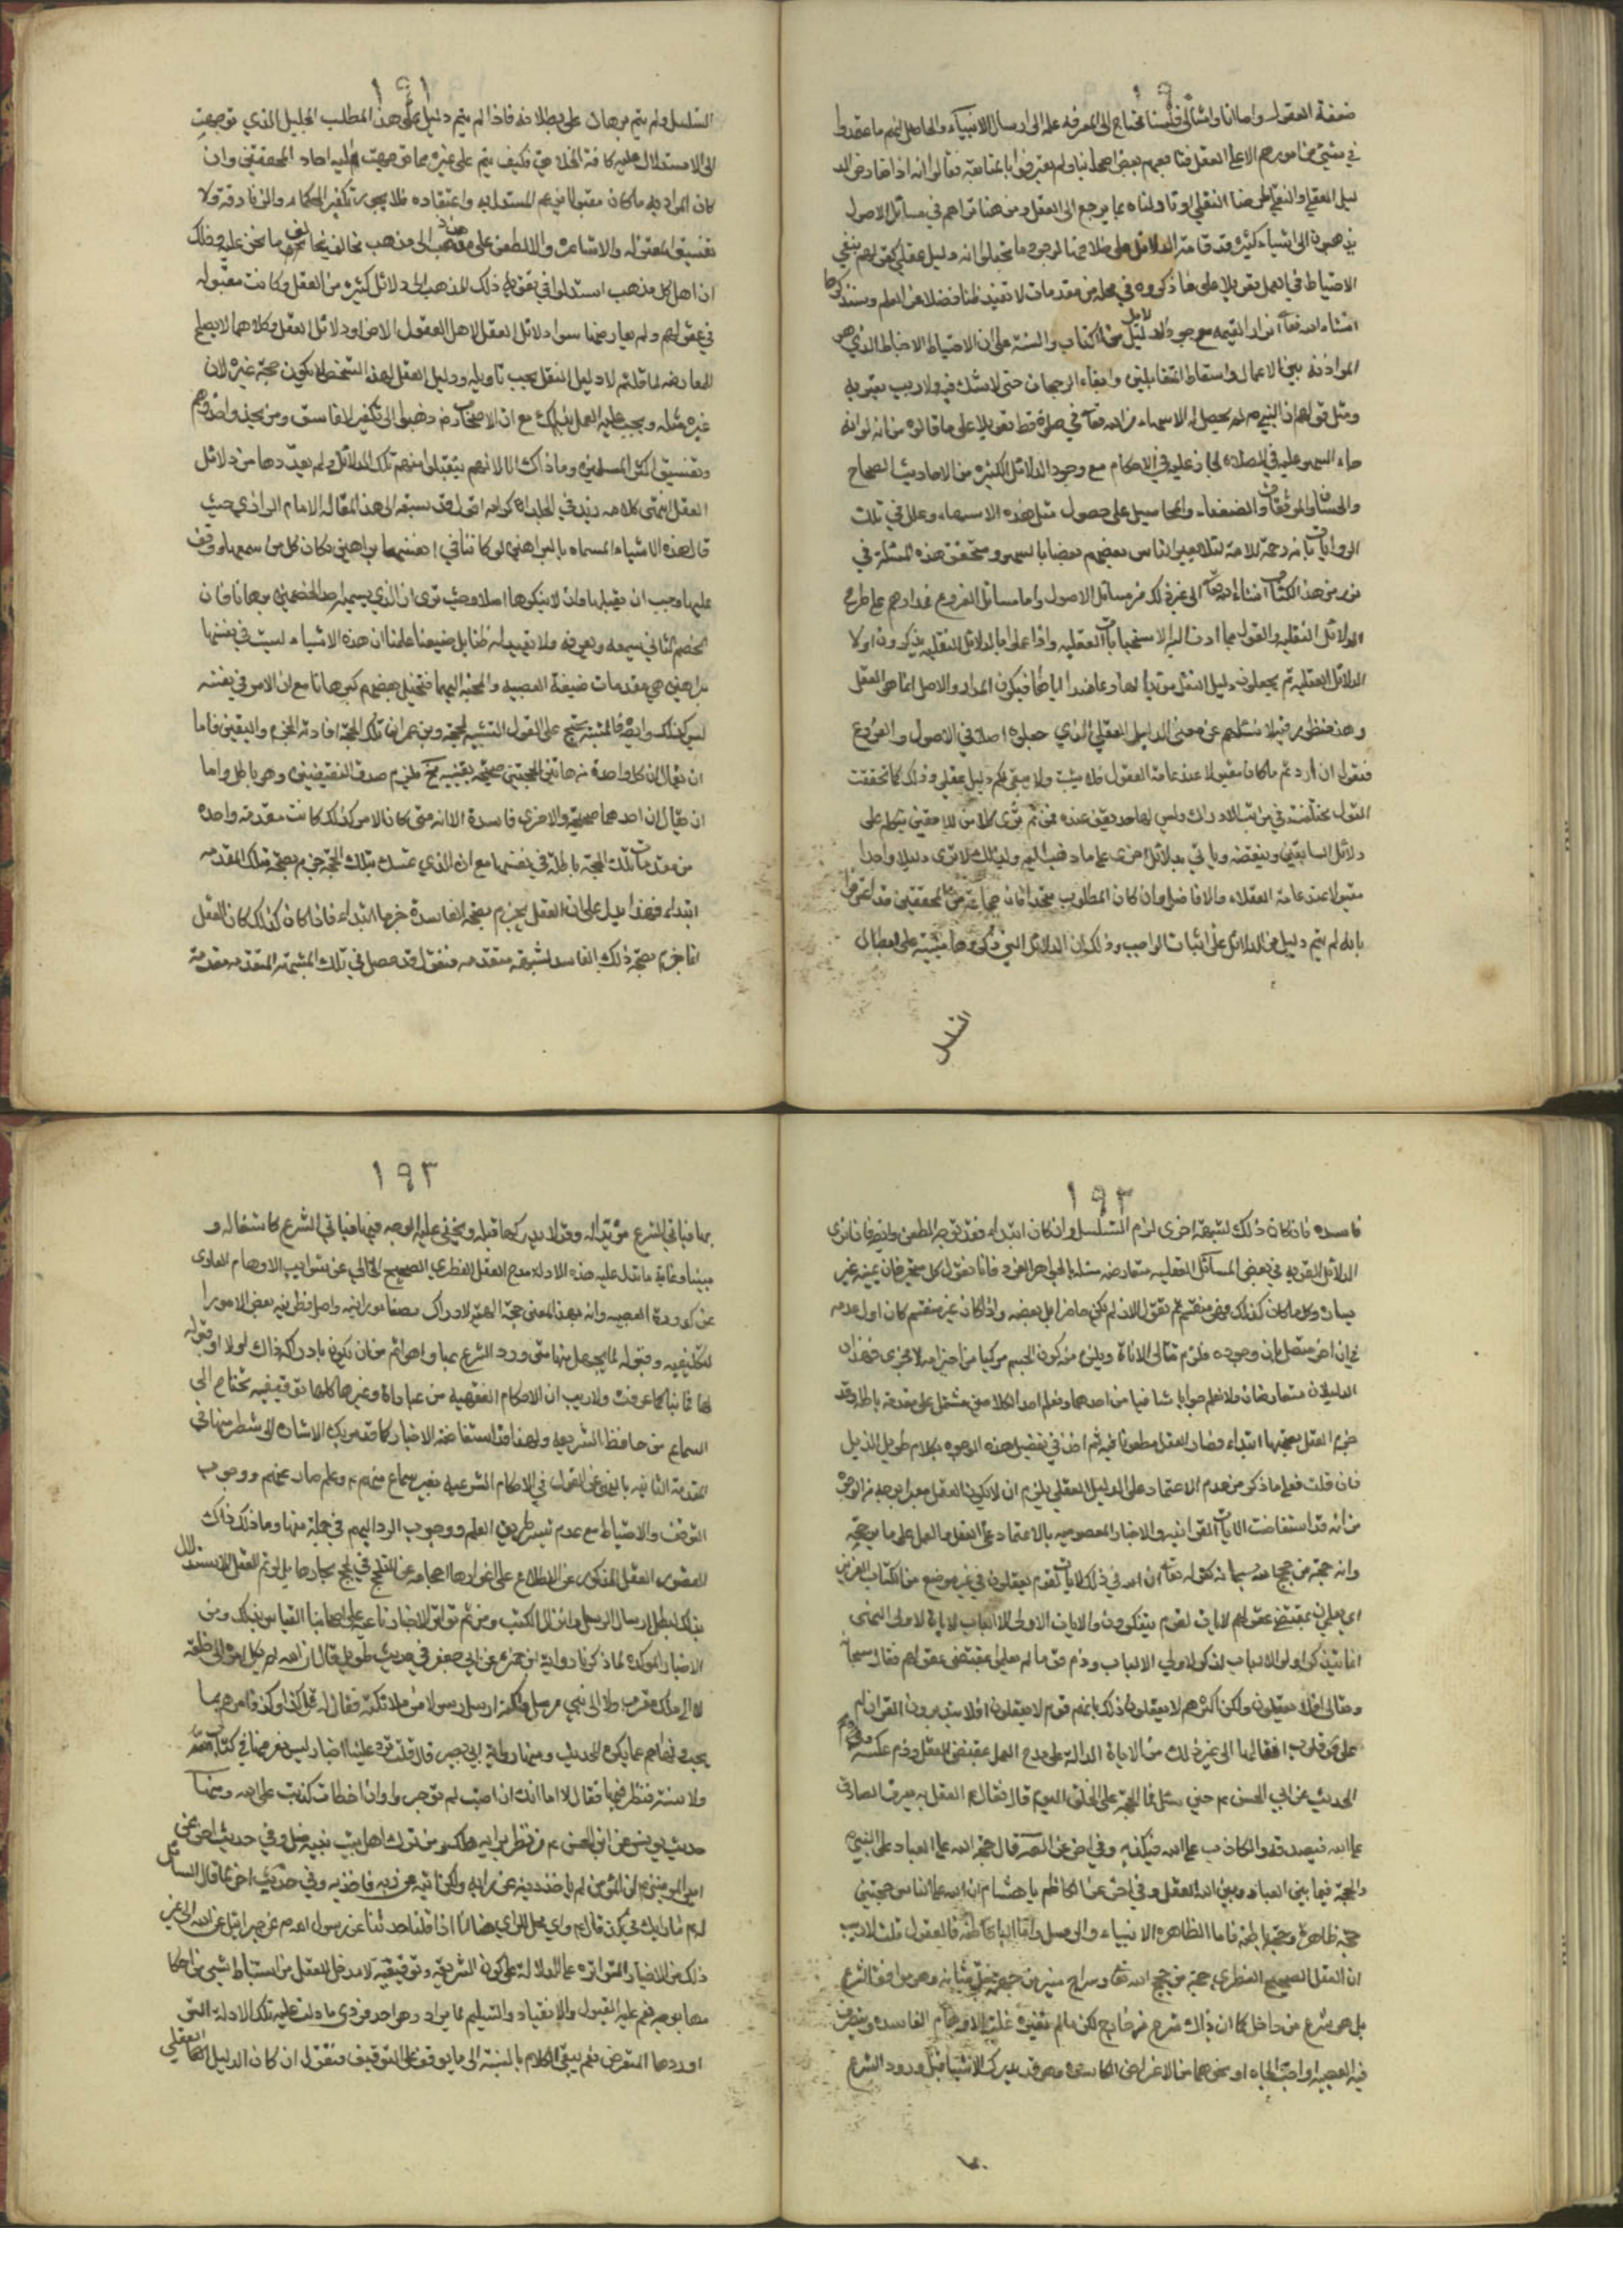 ١٩٠
ضعيفة العقول واما انا وامثالي فلسنا نحتاج الى المعرفه علم الى ارسال الانبياء والحاصل انهم ما اعتمدوا
في شيئ من امورهم الا على العقل فتابعهم بعض اصحابنا ولم يعترفوا بالمتابعة فقالوا انه اذا تعارض الد
ليل العقلي والنقلي طرحنا النقلي او تاولناه بما يرجع الى العقل ومن هنا تراهم في مسائل الاصول
يذهبون الى اشياء كثيرة قد قامت الدلائل على خلافها لوجود ما تخيلوا انه دليل عقلي كقولهم بنفي
الاحباط في العمل تعويلا على ما ذكروه في محله من مقدمات لا تفيد ظنا فضلا عن العلم وسنذكرها
انشاء الله تعالى انوار القيمه مع وجود الدلايل من الكتاب والسنة على ان الاحباط الذي هو
الموازنه بين الاعمال واسقاط المتقابلين وابقاء الرجحان حتى لا شك فيه ولا ريب يعتريه
ومثل قولهم ان النبي ص لم يحصل له الاسهاء من الله تعالى في صلوة قط تعويلا على ما قالوه من انه لو انه
جاء السهو عليه في الصلاة لجاز عليه في الاحكام مع وجود الدلائل الكثيره من الاحاديث الصحاح
والحسان والموثقات والضعفاء والمجاهيل على حصول مثل هذه الاسهاء وعلل في تلك
الروايات بانه رحمة للامة لئلا يعير الناس بعضهم بعضا بالسهو وستحقق هذه المسئلة في
نور من هذا الكتاب انشاء الله تعالى الى غير ذلك من مسائل الاصول واما مسائل الفروع فمدارهم على طرح
الدلائل النقليه والقول بما ادت اليه الاستحسانات العقليه واذا عملوا بالدلائل النقليه يذكرون اولا
الدلائل العقليه ثم يجعلون دليل النقل مؤيدا لها وعاضدا اياها فيكون المدار والاصل انما هو العقل
وهذا منظور فيه لانا نسئلهم عن معنى الدليل العقلي الذي جعلوه اصلا في الاصول والفروع
فنقول ان اردتم ما كان مقبولا عند عامة العقول فلا يثبت ولا يبقى لكم دليل عقلي وذلك كما تحققت
العقول مختلفة في مراتب الادراك وليس لها حد تقف عنده فمن ثم ترى كلا من اللاحقين يتكلم على
دلائل السابقين وينقضه ويأتي بدلائل اخرى على ما ذهب اليه ولذلك لا ترى دليلا واحدا
مقبولا عند عامة العقلاء والافاضل وان كان المطلوب متحدا فان جماعة من المحققين قد اعترفوا
بانه لم يتم دليل من الدلائل على اثبات الواجب وذلك ان الدلائل التي ذكروها مبنية على ابطال
التسلسل
١٩١
التسلسل ولم يتم برهان على بطلانه فاذا لم يتم دليل على هذا المطلب الجليل الذي توجهت
الى الاستدلال عليه كافة الخلايق فكيف يتم على غيره مما توجهت اليه احاد المحققين وان
كان المراد به ما كان مقبولا بزعم المستدل به واعتقاده فلا يجوز تكفير الحكماء والزنادقة ولا
تفسيق المعتزله والاشاعره ولا الطعن على من يذهب الى مذهب يخالف ما نحن عليه وذلك
ان اهل كل مذهب استدلوا في تقوية ذلك المذهب الى دلائل كثيره من العقل وكانت مقبوله
في عقولهم ولم يعارضها سوا دلائل العقل لاهل العقول الاخر او دلائل النقل وكلاهما لا يصلح
للمعارضه لما قلتم لا دليل النقل يجب تاويله ودليل العقل لهذا الشخص لا يكون حجة غيره لان
غيره مثله ويجب عليه العمل بذلك مع ان الاصحاب رض ذهبوا الى تكفير الفلاسفة ومن يحذو حذوهم
وتفسيق اكثر المسلمين وما ذاك الا لانهم لم يقبلوا منهم تلك الدلائل ولم يعدوها من دلائل
العقل انتهى كلامه زيد في الخلد اكرامه اقول قد سبقه الى هذا المقاله الامام الرازي حيث
قال هذه الاشياء المسماه بالبراهين لو كانت في انفسها براهين لكان كل من سمعها ووقف
عليها وجب ان يقبلها وان لا ينكرها اصلا وحيث نرى ان الذي يسميه احد الخصمين برهانا فان
الخصم الثاني يسمعه ويعرفه ولا يفيد له ظنا بل ضعيفا علمنا ان هذه الاشياء ليست في نفسها
براهين بل هي مقدمات ضعيفة العصبيه والمحبه اليها فتخيل بعضهم كونها برهانا مع ان الامر في نفسه
ليس كذلك وايضا فالمشبه يحتج على القول بالتشبيه بحجة ويزعم ان تلك الحجة افادته الجزم واليقين فاما
ان يقال ان كل واحدة من هاتين الحجتين صحيحة يقينيه فح يلزم صدق النقيضين وهو باطل واما
ان يقال ان احدهما صحيحة والاخرى فاسدة الا انه متى كان الامر كذلك كانت مقدمة واحده
من مقدمات تلك الحجة باطلة في نفسها مع ان الذي تمسك بتلك الحجة جزم بصحة تلك المقدمه
ابتداء فهذا يدل على ان العقل يجزم بصحة الفاسدة جزما ابتداء فاذا كان كذلك كان العقل
انما جزم بصحة ذلك الفاسد لشبهة متقدمه فنقول قد حصل في تلك الشبهة المتقدمه مقدمة
١٩٢
فاسده فان كان ذلك لشبهة اخرى لزم التسلسل وان كان ابتداء فقد توجه الطعن وايضا فانا نرى
الدلائل القويه في بعض المسائل العقليه متعارضه مثل مسئلة الجوهر الفرد فانا نقول كل متحيز فان يمينه غير
يساره وكل ما كان كذلك فهو منقسم ثم نقول الان لم يكن حاضرا بل بعضه واذا كان غير منقسم كان اول عدمه
في ان اخر متصل بان وجوده فلزم تتالي الاناة ويلزم منه كون الجسم مركبا من اجزاء لا تتجزى فهذان
الدليلان متعارضان ولا نعلم جوابا شافيا من احدهما ونعلم احد الكلامين مشتمل على مقدمة باطلة وقد
جزم العقل بصحتها ابتداء فصار العقل مطعونا فيه ثم اخذ في تفصيل هذه الوجوه بكلام طويل الذيل
فان قلت فعلى ما ذكر من عدم الاعتماد على الدليل العقلي يلزم ان لا يكون العقل معتبرا بوجه من الوجوه
مع انه قد استفاضت الايات القرانيه والاخبار المعصوميه بالاعتماد على العقل والعمل على ما يرجحه
وانه حجة من حجج الله سبحانه كقوله تعالى ان في ذلك لايات لقوم يعقلون في غير موضع من الكتاب العزيز
اي يعملون بمقتضى عقولهم لايات لقوم يتفكرون والايات لاولى الالباب لايات لاولى النهى
انما يتذكر اولو الالباب لذكرى لاولي الالباب وذم قوما لم يعملوا بمقتضى عقولهم فقال سبحانه
وتعالى افلا يعقلون ولكن اكثرهم لا يعقلون ذلك بانهم قوم لا يعقلون افلا يتدبرون القران ام
على قلوب اقفالها الى غير ذلك من الايات الدالة على مدح العمل بمقتضى العقل وذم عكسه وفي
الحديث عن ابي الحسن ع حين سئل فما الحجة على الخلق اليوم قال فقال ع العقل به يعرف الصادق
على الله فيصدقه والكاذب على الله فيكذبه وفي اخر عن الصادق قال حجة الله على العباد النبي ص
والحجة فيما بين العباد وبين الله العقل وفي اخر عن الكاظم يا هشام ان لله على الناس حجتين
حجة ظاهرة وحجة باطنة فاما الظاهره الانبياء والرسل واما الباطنة فالعقول قلت لا ريب
ان العقل الصحيح الفطري حجة من حجج الله تعالى وسراج منير من جهته جل شانه وهو موافق للشرع
بل هو شرع من داخل كما ان ذاك شرع من خارج لكن مالم تغيره غلبة الاوهام الفاسده ويتصرف
فيه العصبيه او احب الجاه او نحوهما من الاغراض الكاسده وهو قد يدرك الاشيا قبل ورود الشرع
بها
١٩٣
بها فياتي الشرع مؤيدا له وقد لا يدركها قبله ويخفى عليه الوجه فيها فياتي الشرع كاشفا له و
مبينا وغاية ما تدل عليه هذه الادلة مدح العقل الفطري الصحيح الخالي عن شوايب الاوهام العاري
عن كدورة العصبيه وانه بهذا المعنى حجة الهية لادراكه بصفا نورانيه واصل فطرته بعض الامور
التكليفيه وقبوله لما يجهل منها متى ورد الشرع بها وهو اعم من ان يكون بادراكه ذلك اولا او قبوله
لها ثانيا كما عرفت ولا ريب ان الاحكام الفقهية من عبادات وغيرها كلها توقيفيه تحتاج الى
السماع من حافظ الشريعه ولهذا قد استفاضت الاخبار كما قد مر بك الاشارة الى شطر منها في
المقدمة الثالثه بالنهي عن القول في الاحكام الشرعيه بغير سماع منهم ع وعلم صادر عنهم ووجوب
التوقف والاحتياط مع عدم تيسر طريق العلم ووجوب الرد اليهم في جملة منها وما ذلك الا
لقصور العقل المذكور عن الاطلاع على اغوارها واحجامه عن التلجج في لجج بحارها بل لو تم للعقل الاستقلال
بذلك لبطل ارسال الرسل وانزال الكتب ومن ثم تواترت الاخبار ناعية على اصحاب القياس بذلك ومن
الاخبار المؤكده لما ذكرنا رواية ابي حمزه عن ابي جعفر في حديث طويل قال ان الله لم يكل امره الى خلقه
لا الى ملك مقرب ولا الى نبي مرسل ولكنه ارسل رسولا من ملائكته فقال له قل كذا وكذا فامرهم بما
يحب ونهاهم عما يكره الحديث ومنها رواية ابي بصير قال قلت ترد علينا اشياء ليس نعرفها في كتاب الله
ولا سنة فننظر فيها فقال لا اما انك ان اصبت لم توجر وان اخطات كذبت على الله ومنها
حديث يونس عن ابي الحسن ع من نظر برايه هلك ومن ترك اهل بيت نبيه ضل وفي حديث اخر عن
امير المؤمنين ع ان المؤمن لم ياخذ دينه عن رايه ولكن اتاه من ربه فاخذ به وفي حديث اخر لما قال السائل
له ع ما رايك في كذا قال ع واي محل للراي هنا انا اذا قلنا حدثنا عن رسول الله ص عن جبرائيل عن الله الى غير
ذلك من الاخبار المتواتره على الدلالة على كون الشريعة توقيفية لا مدخل للعقل في استنباط شيئ من احكا
مها بوجه نعم عليه القبول والانقياد والتسليم لما يراد وهو احد فردي ما دلت عليه تلك الادلة التي
اوردها المعترض نعم يبقى الكلام بالنسبة الى ما لا يتوقف على التوقيف فنقول ان كان الدليل العقلي